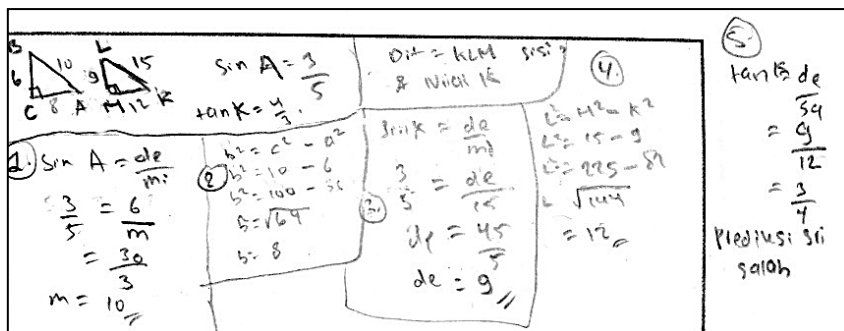 B
6 10
C 8 A
L
9 15
M 12 K
sin A = 3/5
tan K = 4/3.
Dit = KLM sisi ?
& Nilai K
1. Sin A = de/mi
3/5 = 6/m
= 30/3
m = 10 //
2 b² = c² - a²
b² = 10 - 6
b² = 100 - 36
b = √64
b = 8
3. Sin K = de/mi
3/5 = de/15
de = 45/5
de = 9 //
4.
L² = M² - K²
L² = 15 - 9
L² = 225 - 81
L √144
= 12 //
5
tan K = de/sa
= 9/12
= 3/4
Prediksi sri
salah